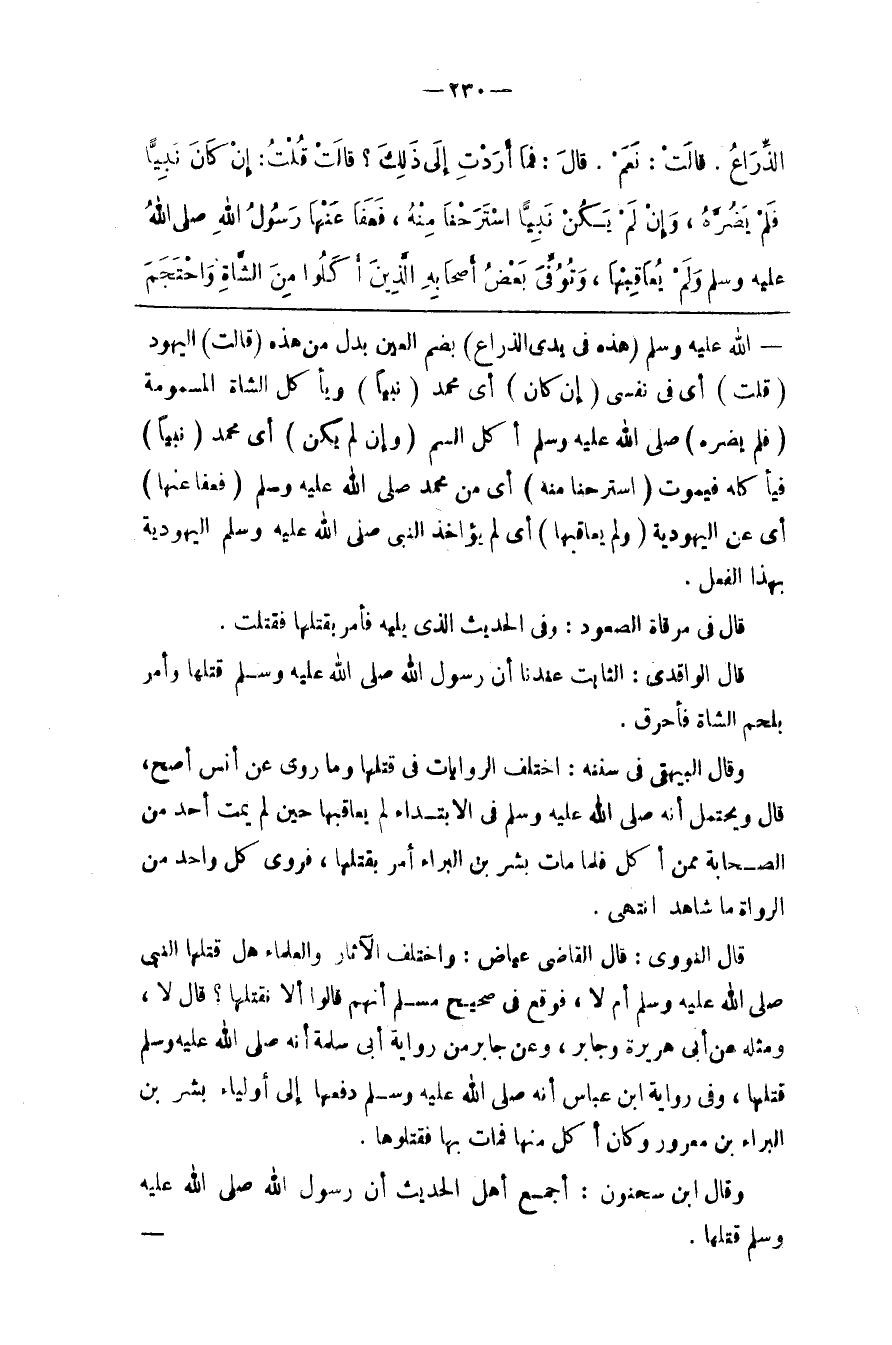 — ٢٣٠ —
الذِّرَاعُ . قالَتْ : نَعَمْ . قالَ : فَمَا أَرَدْتِ إِلَى ذَلِكَ ؟ قالَتْ قُلْتُ : إِنْ كَانَ نَبِيًّا
فَلَمْ يَضُرَّهُ ، وَإِنْ لَمْ يَكُنْ نَبِيًّا اسْتَرَحْنَا مِنْهُ ، فَعَفَا عَنْهَا رَسُولُ اللهِ صلى اللهُ
عليه وسلم وَلَمْ يُعَاقِبْهَا ، وَتُوُفِّىَ بَعْضُ أَصْحَابِهِ الَّذِينَ أَكَلُوا مِنَ الشَّاةِ وَاحْتَجَمَ
— الله عليه وسلم (هذه فى يدى الذراع) بضم العين بدل من هذه (قالت) اليهود
( قلت ) أى فى نفسى ( إن كان ) أى محمد ( نبياً ) ويأكل الشاة المسمومة
( فلم يضره ) صلى الله عليه وسلم أكل السم ( وإن لم يكن ) أى محمد ( نبياً )
فيأكله فيموت ( استرحنا منه ) أى من محمد صلى الله عليه وسلم ( فعفا عنها )
أى عن اليهودية ( ولم يعاقبها ) أى لم يؤاخذ النبى صلى الله عليه وسلم اليهودية
بهذا الفعل .
قال فى مرقاة الصعود : وفى الحديث الذى يليه فأمر بقتلها فقتلت .
قال الواقدى : الثابت عندنا أن رسول الله صلى الله عليه وسلم قتلها وأمر
بلحم الشاة فأحرق .
وقال البيهقى فى سننه : اختلف الروايات فى قتلها وما روى عن أنس أصح،
قال ويحتمل أنه صلى الله عليه وسلم فى الابتداء لم يعاقبها حين لم يمت أحد من
الصحابة ممن أكل فلما مات بشر بن البراء أمر بقتلها ، فروى كل واحد من
الرواة ما شاهد انتهى .
قال النووى : قال القاضى عياض : واختلف الآثار والعلماء هل قتلها النبى
صلى الله عليه وسلم أم لا ، فوقع فى صحيح مسلم أنهم قالوا ألا نقتلها ؟ قال لا ،
ومثله عن أبى هريرة وجابر ، وعن جابر من رواية أبى سلمة أنه صلى الله عليه وسلم
قتلها ، وفى رواية ابن عباس أنه صلى الله عليه وسلم دفعها إلى أولياء بشر بن
البراء بن معرور وكان أكل منها فمات بها فقتلوها .
وقال ابن سحنون : أجمع أهل الحديث أن رسول الله صلى الله عليه
وسلم قتلها . —